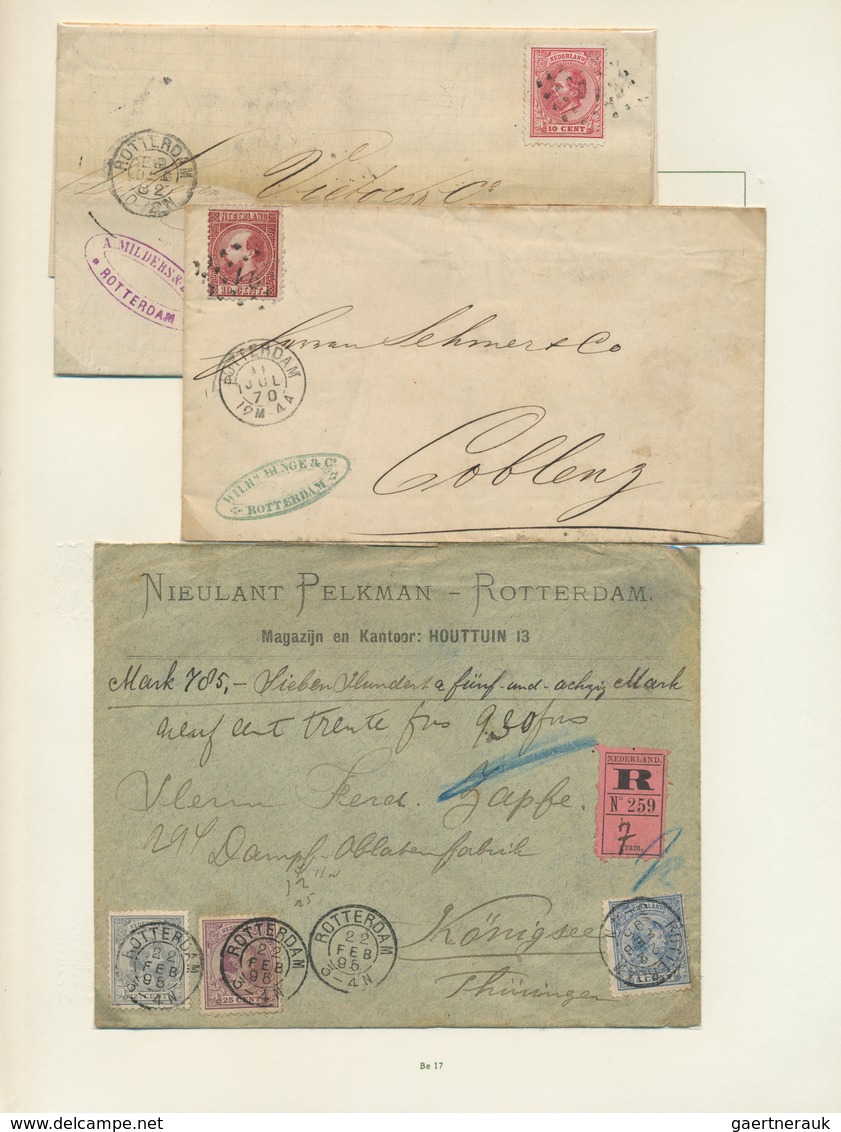 NEDERLAND
10 CENT
ROTTERDAM
FEB
82
Victor & Co
A. MILDERS &
ROTTERDAM
NEDERLAND
10 CENT.
Herren Sehmer & Co
ROTTERDAM
11
JUL
70
12M-4A
Coblenz
WILHM BUNGE & Co
ROTTERDAM
NIEULANT PELKMAN - ROTTERDAM.
Magazijn en Kantoor: HOUTTUIN 13
Mark 785,- Sieben Hundert & fünf-und-achzig Mark
neuf cent trente frs 930 frs
NEDERLAND.
R
N° 259
7
Gram.
Herrn Ferd. Zapfe.
294 Dampf-Oblatenfabrik
Königsee
Thüringen
ROTTERDAM
22
FEB
95
3-4N
25 CENT
ROTTERDAM
22
FEB
95
3-4N
ROTTERDAM
22
FEB
95
3-4N
Be 17
delcampe.net
gaertnerauk